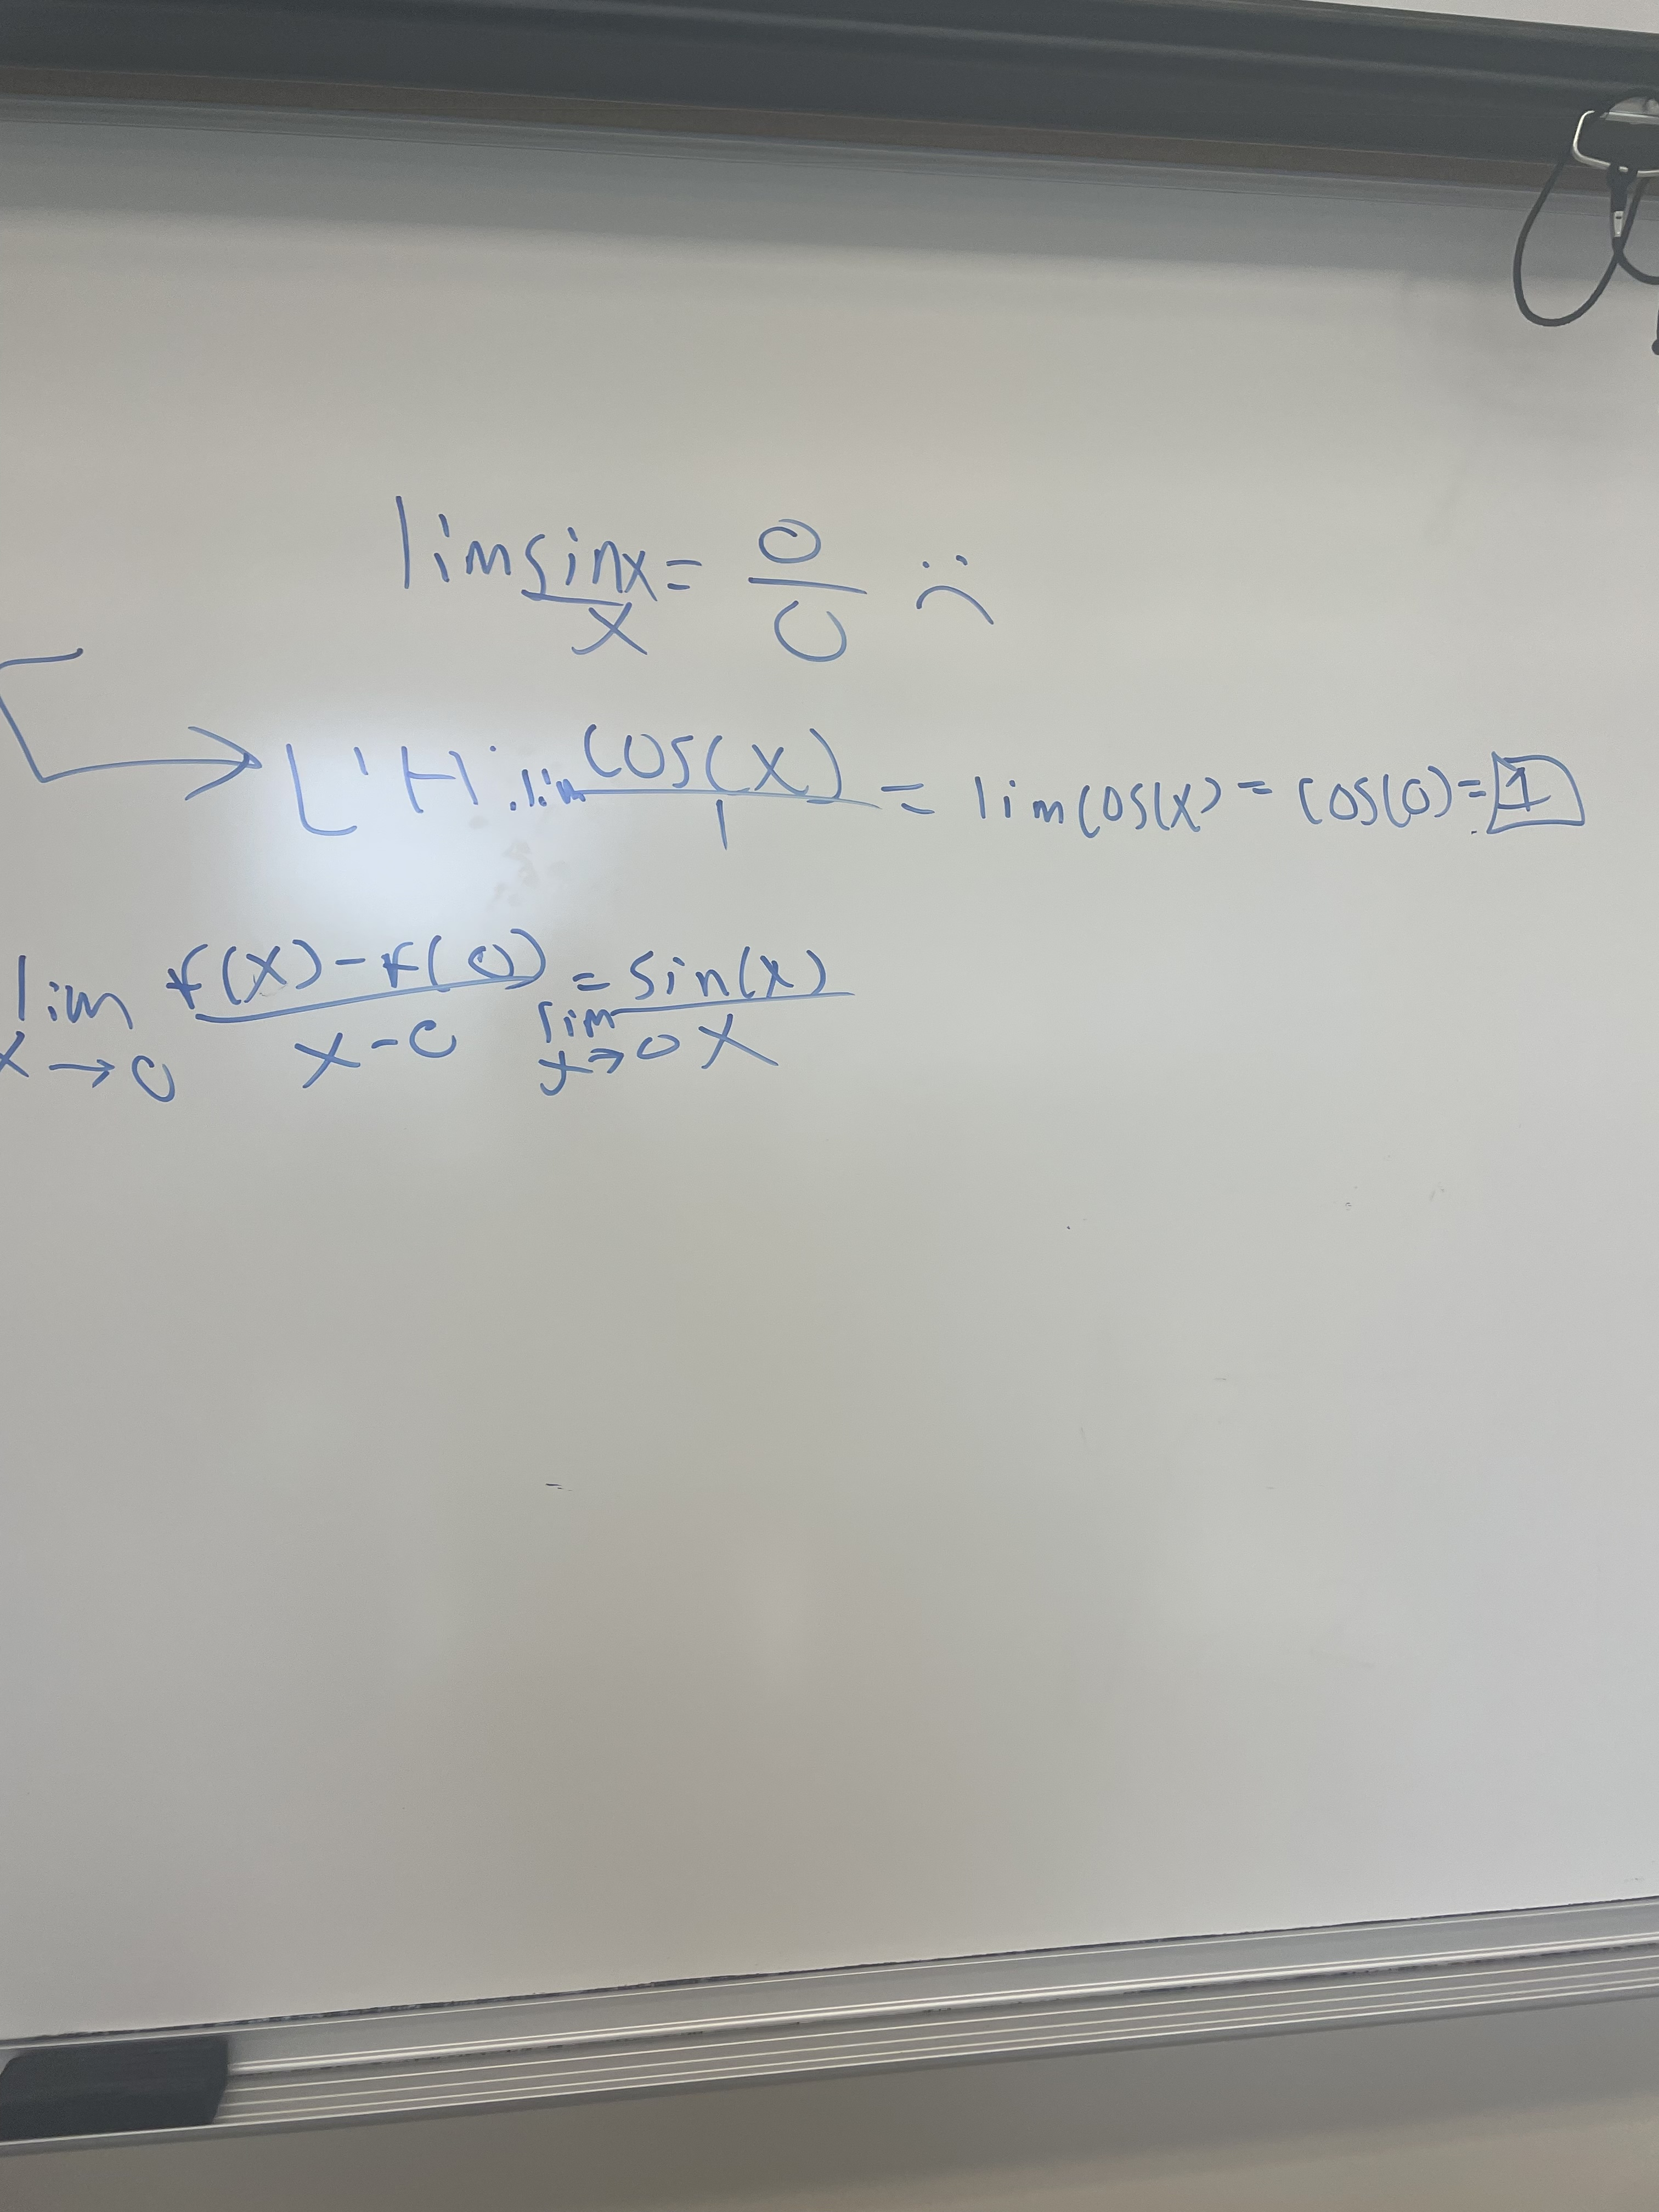 lim sinx/x = 0/0 :(
L'H: lim cos(x)/1 = lim cos(x) = cos(0) = 1
lim x→0 f(x)-f(0)/x-0 = lim x→0 sin(x)/x